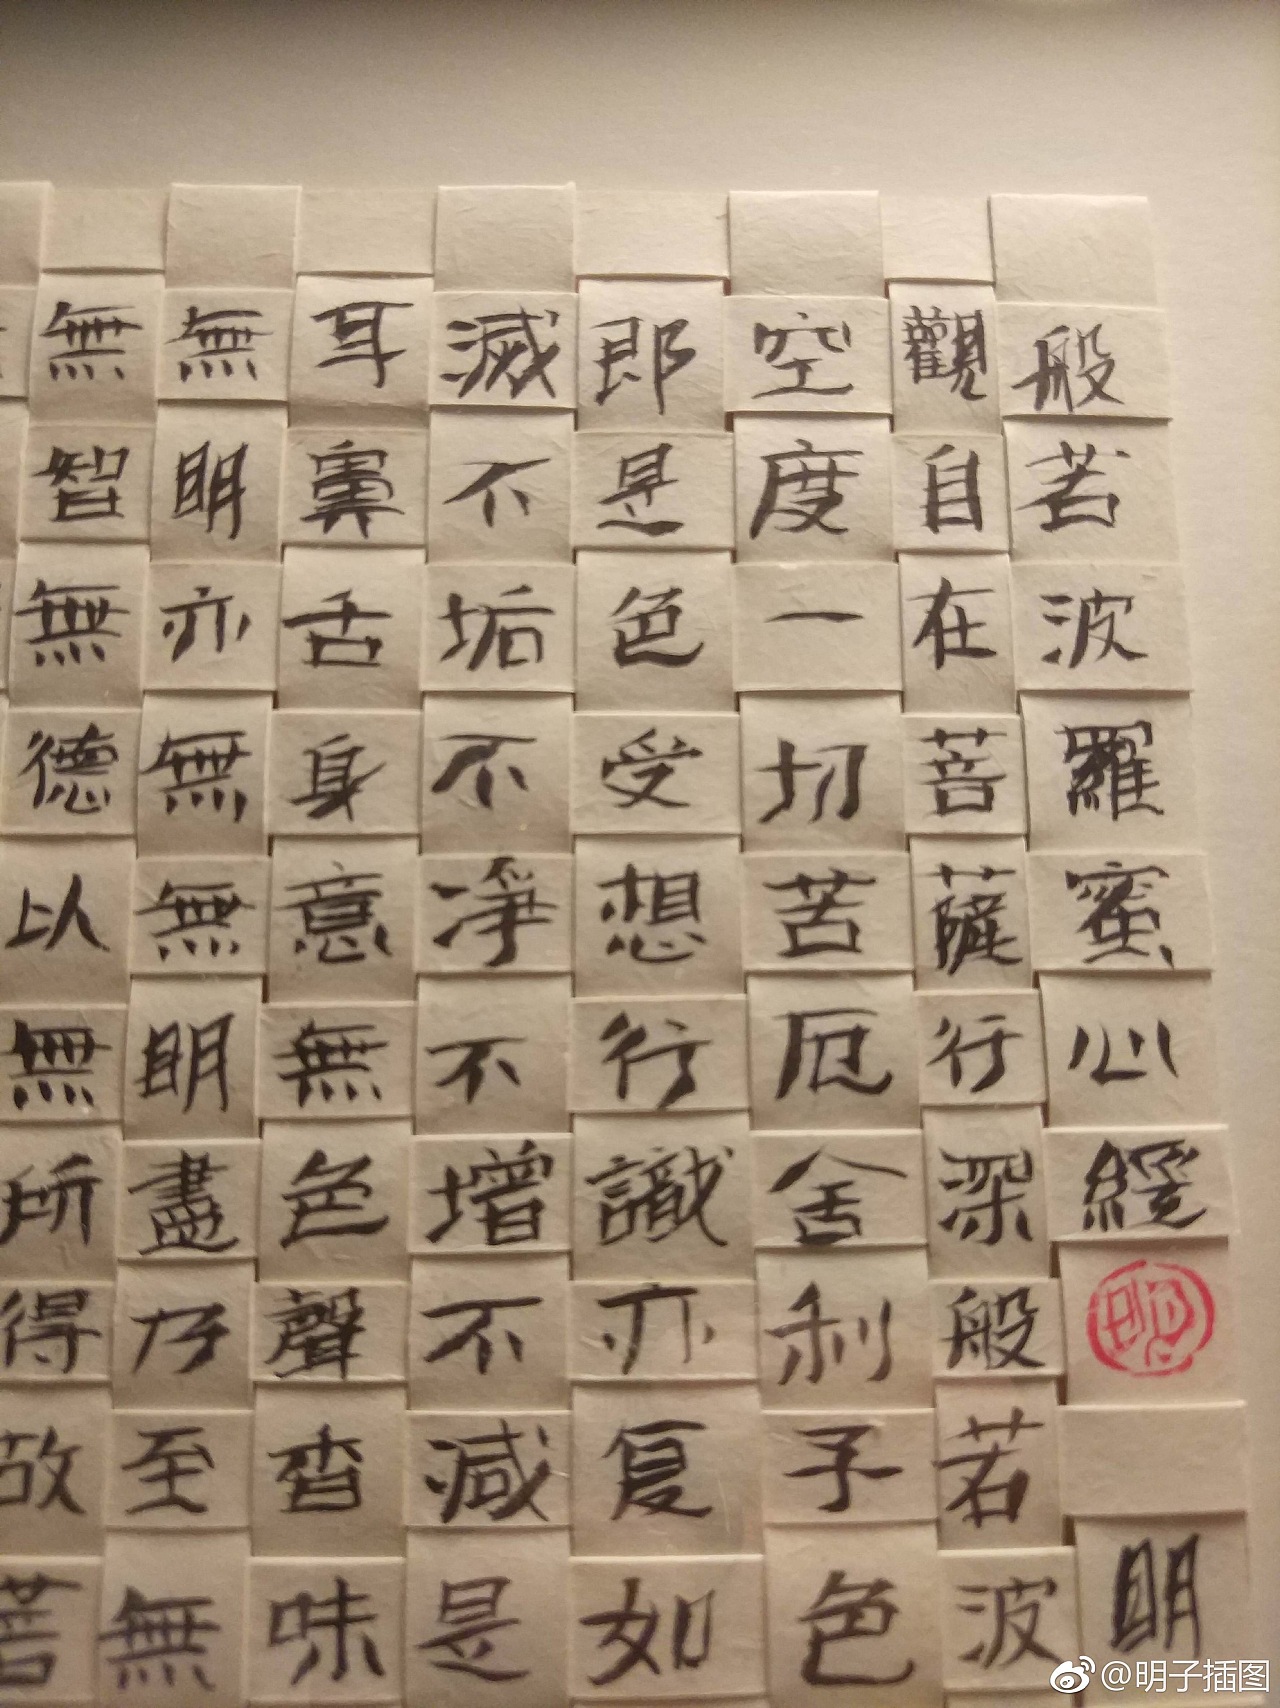 般若波羅蜜心緩
明
明
觀自在菩薩行深般若波
空度一切苦厄舍利子色
即是色受想行識亦复如
滅不垢不淨不增不減是
耳鼻舌身意無色聲香味
無明亦無無明盡乃至無
無智無德以無所得故菩
@明子插图